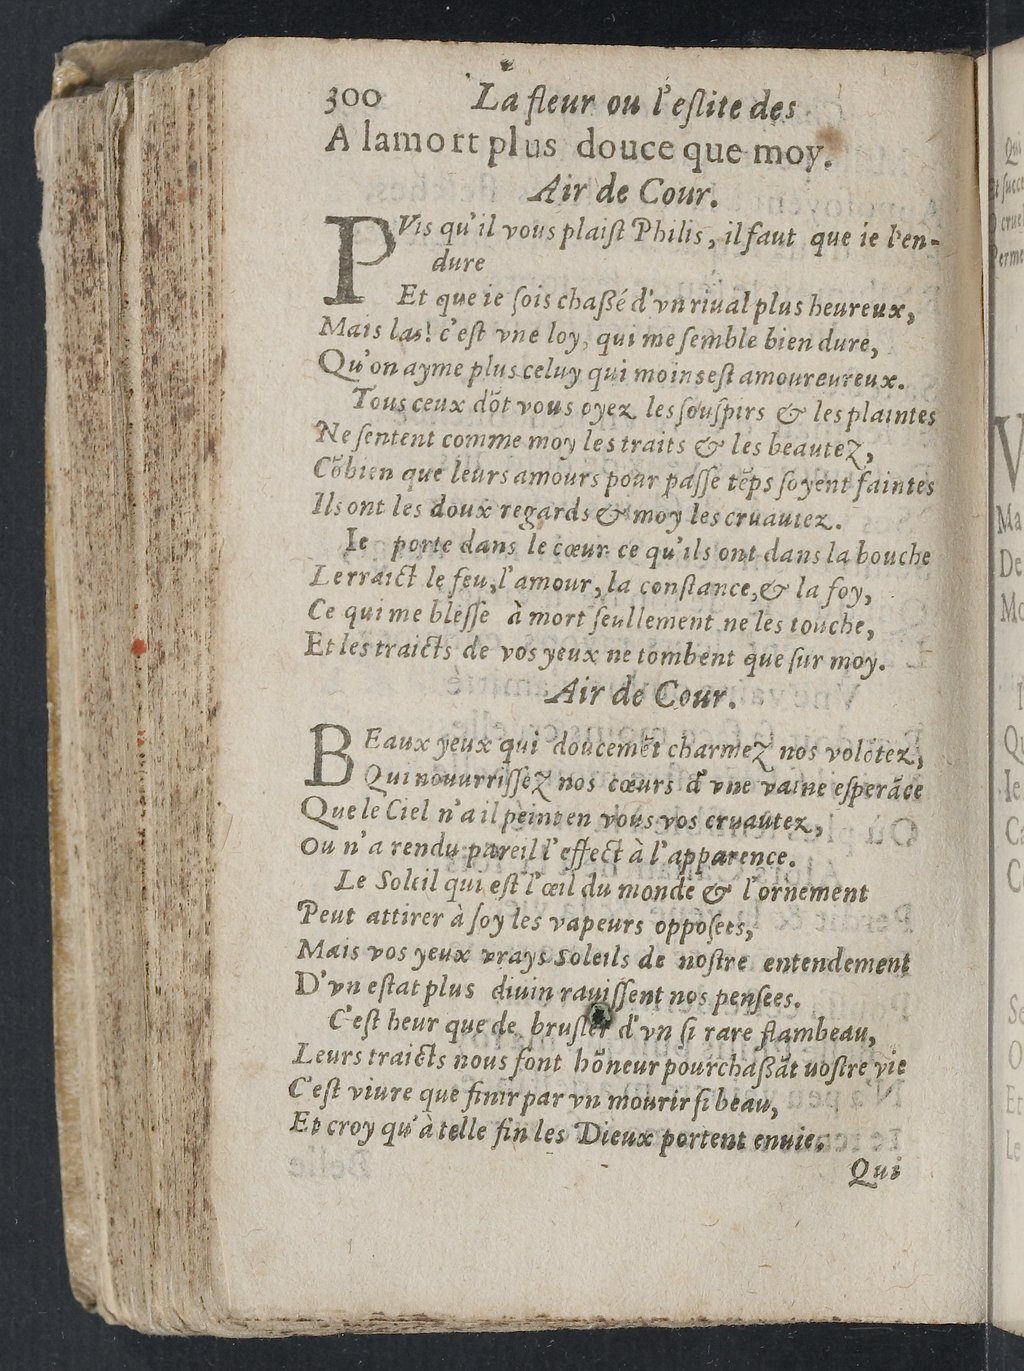 300 La fleur ou l'eſlite des
A lamort plus douce que moy.
Air de Cour.
PVis qu'il vous plaiſt Philis, il faut que ie l'en-
dure
Et que ie ſois chaßé d'vn riual plus heureux,
Mais las! c'eſt vne loy, qui me ſemble bien dure,
Qu'on ayme plus celuy qui moins eſt amoureureux.
Tous ceux dõt vous oyez les ſouſpirs & les plaintes
Ne ſentent comme moy les traits & les beautez,
Cõbien que leurs amours pour paſſe tẽps ſoyent faintes
Ils ont les doux regards & moy les cruautez.
Ie porte dans le cœur ce qu'ils ont dans la bouche
Lerraict le feu, l'amour, la conſtance, & la foy,
Ce qui me bleſſe à mort ſeullement ne les touche,
Et les traicts de vos yeux ne tombent que ſur moy.
Air de Cour.
BEaux yeux qui doucemẽt charmez nos volõtez,
Qui nouurriſſez nos cœurs d'vne vaine eſperãce
Que le Ciel n'a il peint en vous vos cruautez,
Ou n'a rendu pareil l'effect à l'apparence.
Le Soleil qui eſt l'œil du monde & l'ornement
Peut attirer à ſoy les vapeurs oppoſees,
Mais vos yeux vrays Soleils de noſtre entendement
D'vn eſtat plus diuin rauiſſent nos penſees.
C'eſt heur que de bruſler d'vn ſi rare flambeau,
Leurs traicts nous font hõneur pourchaßãt uoſtre vie
C'eſt viure que finir par vn mourir ſi beau,
Et croy qu'à telle fin les Dieux portent enuie.
Qui